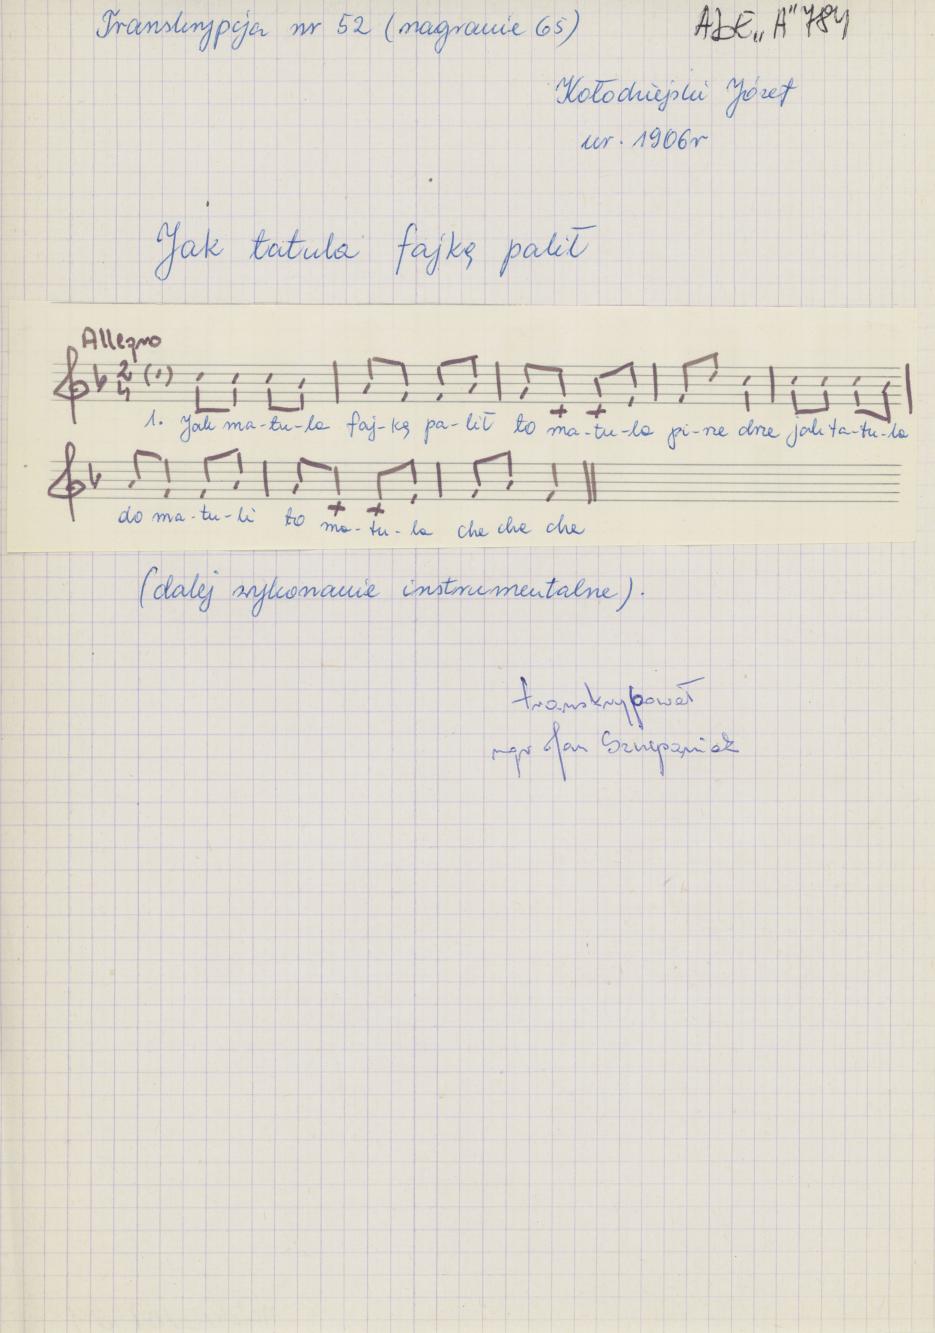 Transkrypcja nr 52 (nagranie 65)
AbE „A" 784
Kołodziejski Józef
ur. 1906r
Jak tatula fajkę palił
Allegro
2
4
1. Jak ma-tu-la faj-kę pa-lił to ma-tu-la pi-rze drze jak ta-tu-la
do ma-tu-li to ma-tu-la che che che
(dalej wykonanie instrumentalne).
transkrypował
mgr Jan Szczepaniak